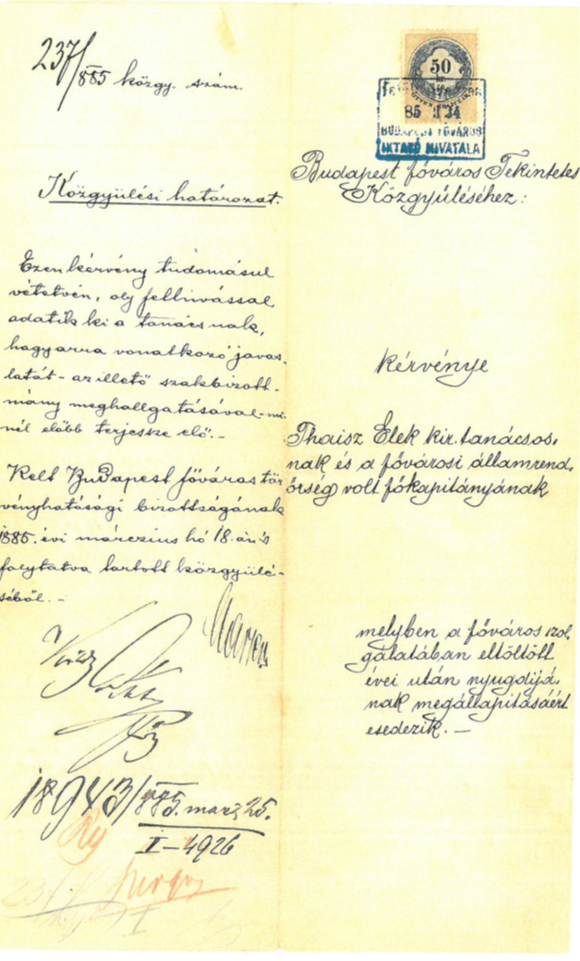 237/885 közgy. szám.
Közgyülési határozat.
Ezen kérvény tudomásul
vétetvén, oly felhivással
adatik ki a tanácsnak,
hogy arra vonatkozó javas-
latát - az illető szakbizott-
mány meghallgatásával - mi-
nél előbb terjessze elő. -
Kelt Budapest főváros tör
vényhatósági bizottságának
1885. évi márczius hó 18.-án s
folytatva tartott közgyülé-
séből. -
18943/885. marz 25.
I-4926
Sürgős
I
50
85
BUDAPEST FŐVÁROS
IKTATÓ HIVATALA
Budapest főváros Tekintetes
Közgyűléséhez:
kérvénye
Thaisz Elek kir. tanácsos,
nak és a fővárosi államrend,
őrség volt főkapitányának
melyben a főváros szol
gálatában eltöltött
évei után nyugdijá,
nak megállapitásáért
esedezik. -